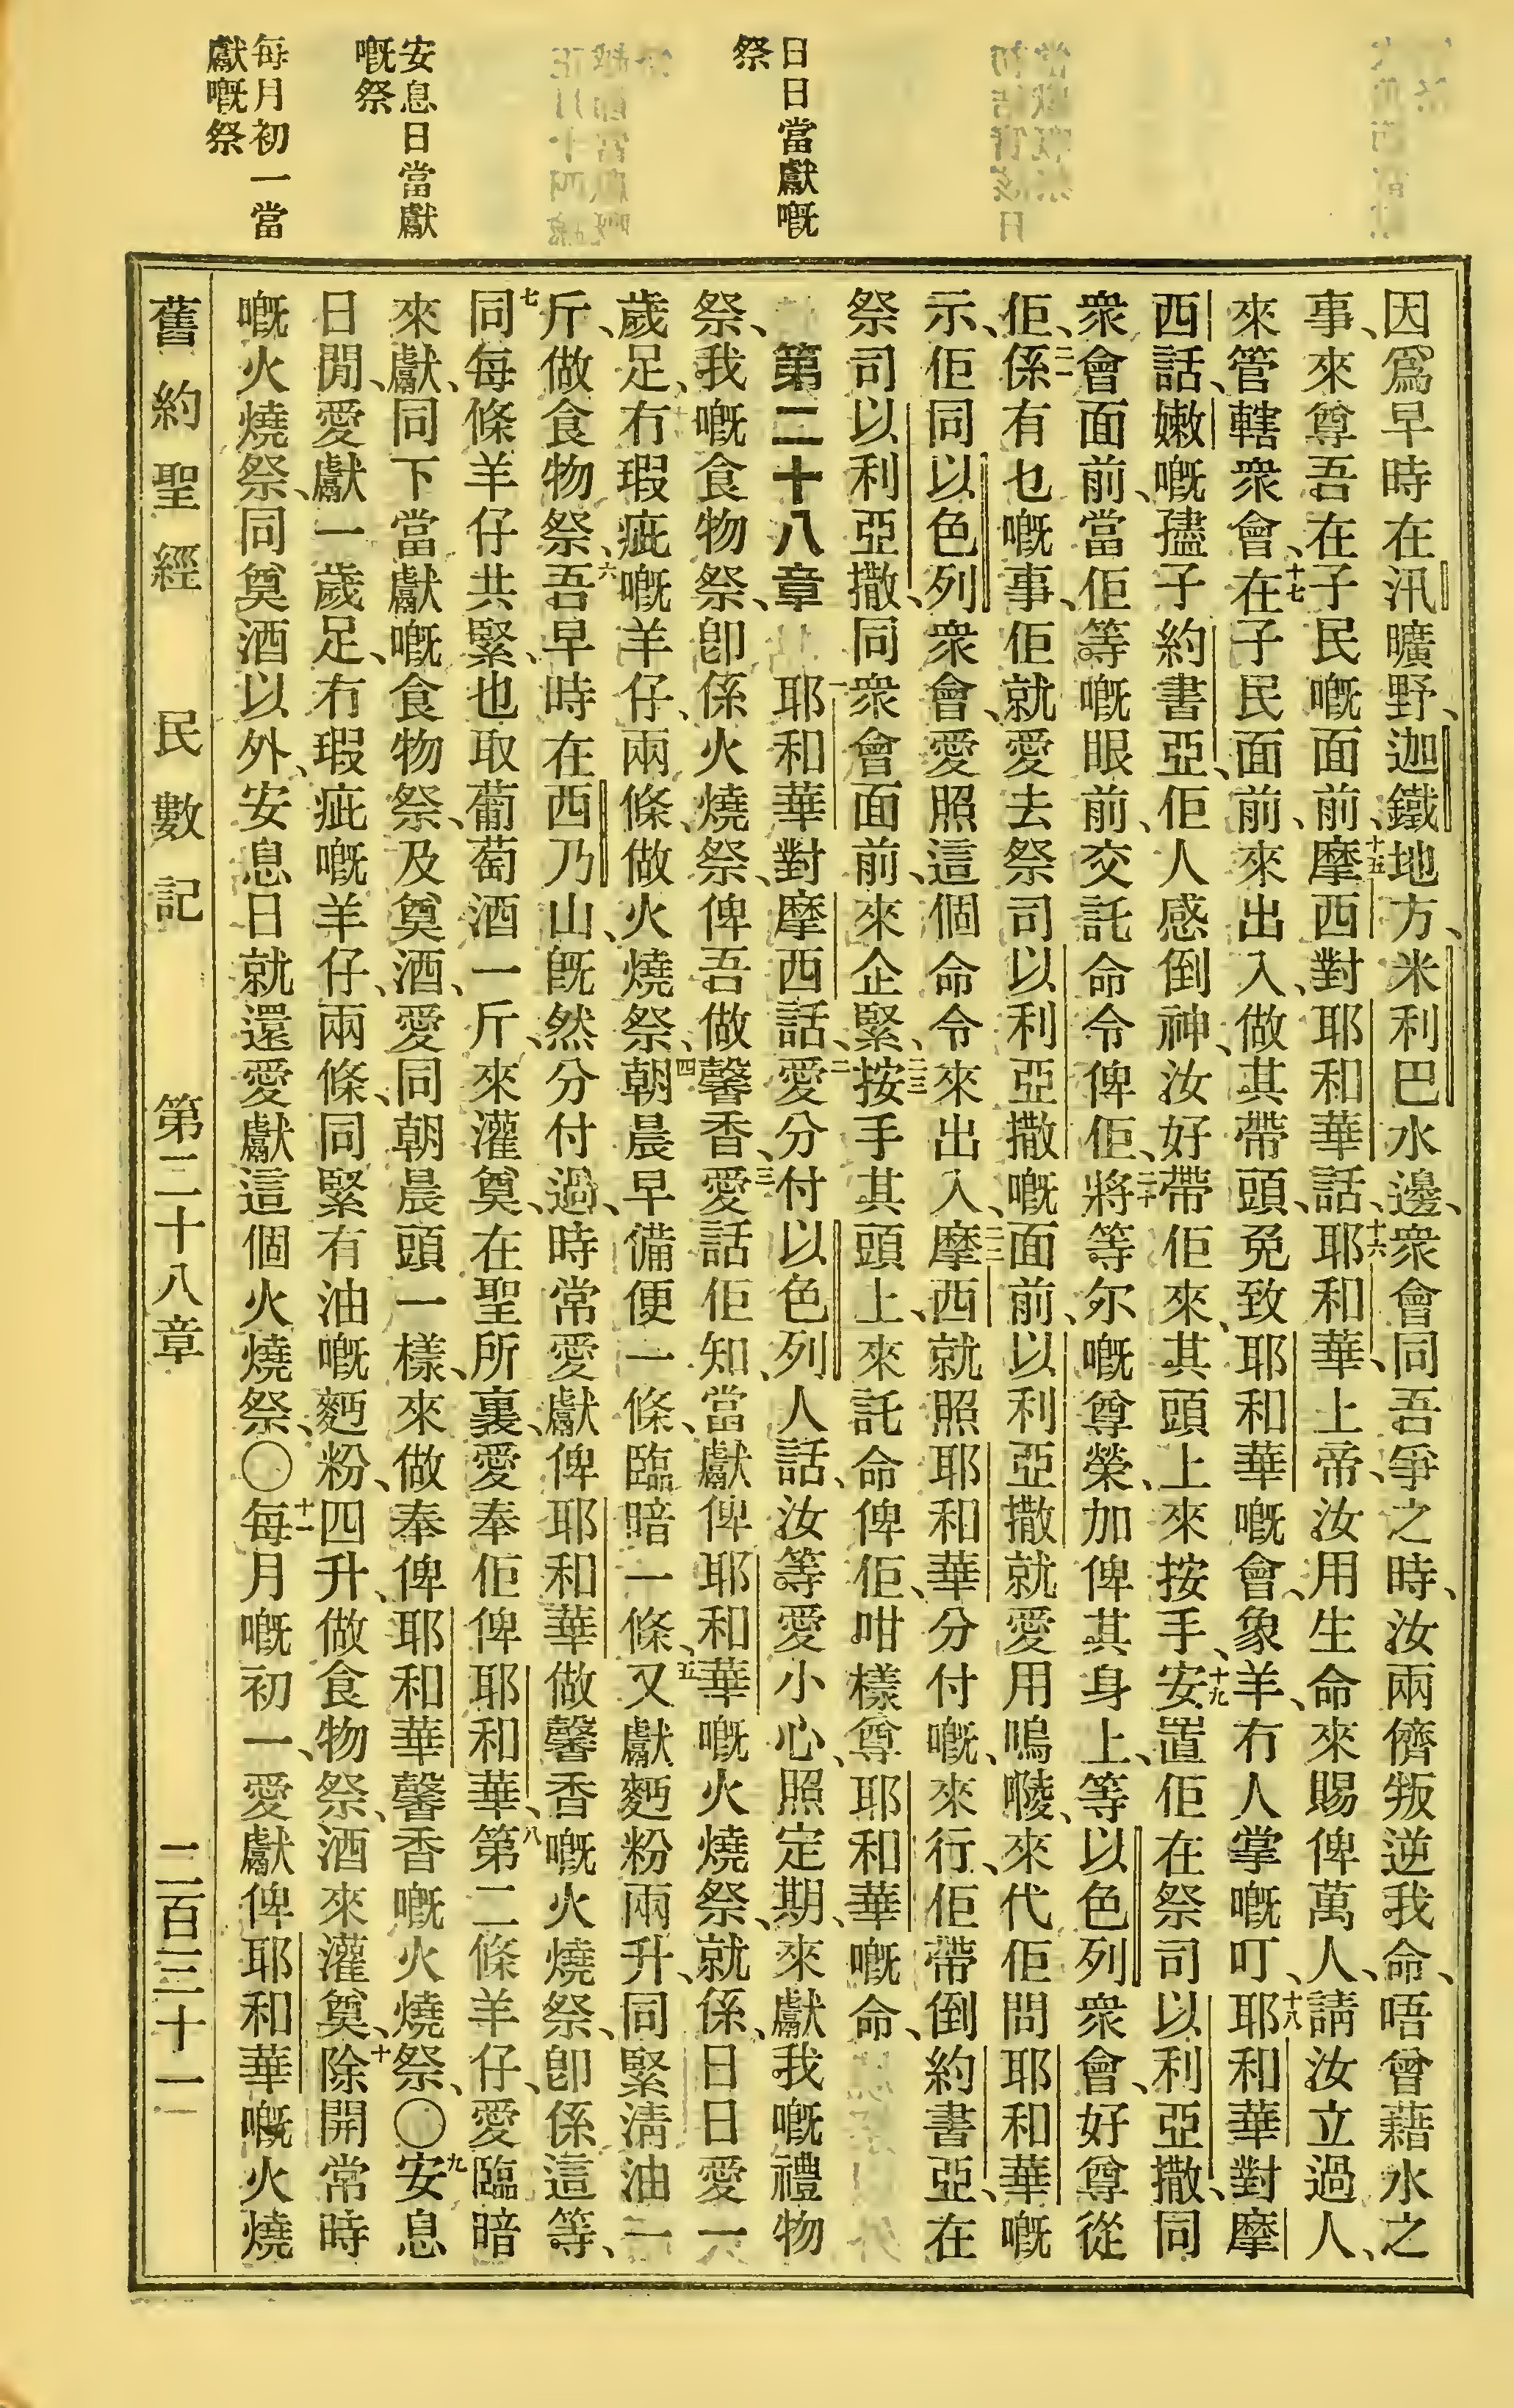 日日當獻嘅
祭
安息日當獻
嘅祭
每月初一當
獻嘅祭
因爲早時在汛曠野、迦鐵地方、米利巴水邊、衆會同吾爭之時、汝兩儕叛逆我命、唔曾藉水之
事、來尊吾在子民嘅面前、十五摩西對耶和華話、十六耶和華、上帝、汝用生命來賜俾萬人、請汝立過人、
來管轄衆會、十七在子民面前、來出入、做其帶頭、免致耶和華嘅會、象羊、冇人掌嘅叮、十八耶和華對摩
西話、嫩嘅孻子約書亞、佢人感倒神、汝好帶佢來、其頭上來按手、十九安置佢在祭司以利亞撒、同
衆會面前、當佢等嘅眼前、交託命令俾佢、二十將等尔嘅尊榮、加俾其身上、等以色列衆會、好尊從
佢、二一係有乜嘅事、佢就愛去祭司以利亞撒嘅面前、以利亞撒就愛用嗚㖫、來代佢問耶和華嘅
示、佢同以色列衆會、愛照這個命令來出入、二二摩西就照耶和華分付嘅、來行、佢帶倒約書亞、在
祭司以利亞撒、同衆會面前、來企緊、二三按手其頭上、來託命俾佢、咁樣尊耶和華嘅命、
第二十八章 一耶和華對摩西話、二愛分付以色列人話、汝等愛小心、照定期、來獻我嘅禮物
祭、我嘅食物祭、卽係火燒祭、俾吾做馨香、三愛話佢知、當獻俾耶和華嘅火燒祭、就係、日日愛一
歲足、冇瑕疵嘅羊仔、兩條、做火燒祭、四朝晨早備便一條、臨暗一條、五又獻麪粉兩升、同緊淸油一
斤、做食物祭、六吾早時在西乃山、旣然分付過、時常愛獻俾耶和華做馨香嘅火燒祭、卽係這等、
七同每條羊仔共緊、也取葡萄酒一斤、來灌奠、在聖所裏、愛奉佢俾耶和華、八第二條羊仔、愛臨暗
來獻、同下當獻嘅食物祭、及奠酒、愛同朝晨頭一樣、來做奉俾耶和華馨香嘅火燒祭、〇九安息
日閒、愛獻一歲足、冇瑕疵嘅羊仔、兩條、同緊有油嘅麪粉、四升、做食物祭、酒來灌奠、十除開常時
嘅火燒祭、同奠酒以外、安息日就還愛獻這個火燒祭、〇十一每月嘅初一、愛獻俾耶和華嘅火燒
舊約聖經 民數記 第二十八章 二百三十一